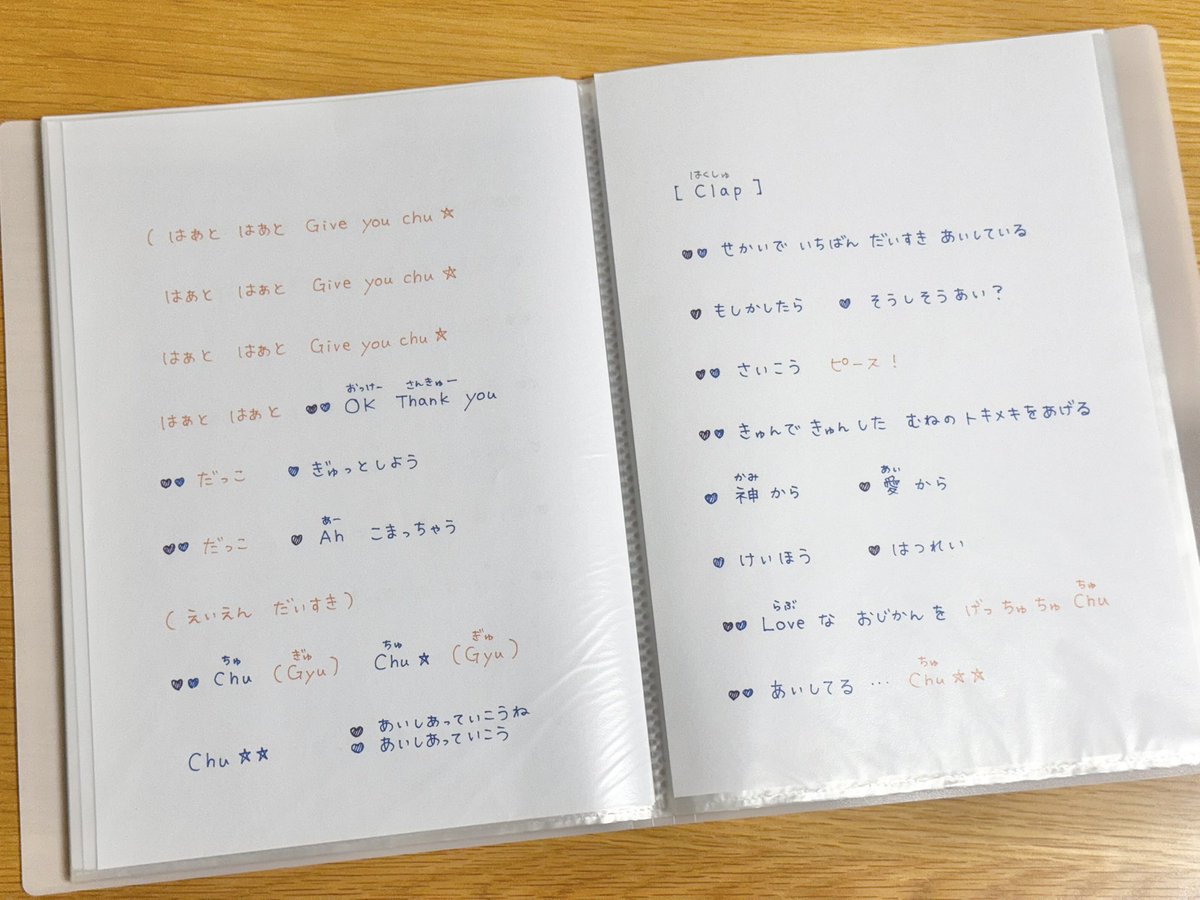 ( はぁと はぁと Give you chu ☆
はぁと はぁと Give you chu ☆
はぁと はぁと Give you chu ☆
おっけー さんきゅー
はぁと はぁと ♥♥ OK Thank you
♥♥ だっこ ♥ ぎゅっとしよう
あー
♥♥ だっこ ♥ Ah こまっちゃう
( えいえん だいすき )
ちゅ ぎゅ ちゅ ぎゅ
♥♥ Chu (Gyu) Chu ☆ (Gyu)
♥ あいしあっていこうね
♥ あいしあっていこう
Chu ☆☆
はくしゅ
[ Clap ]
♥♥ せかいで いちばん だいすき あいしている
♥ もしかしたら ♥ そうしそうあい？
♥♥ さいこう ピース！
♥♥ きゅんで きゅんした むねのトキメキをあげる
かみ あい
♥ 神から ♥ 愛から
♥ けいほう ♥ はつれい
らぶ ちゅ
♥♥ Love な おじかんを げっちゅちゅ Chu
ちゅ
♥♥ あいしてる … Chu ☆☆